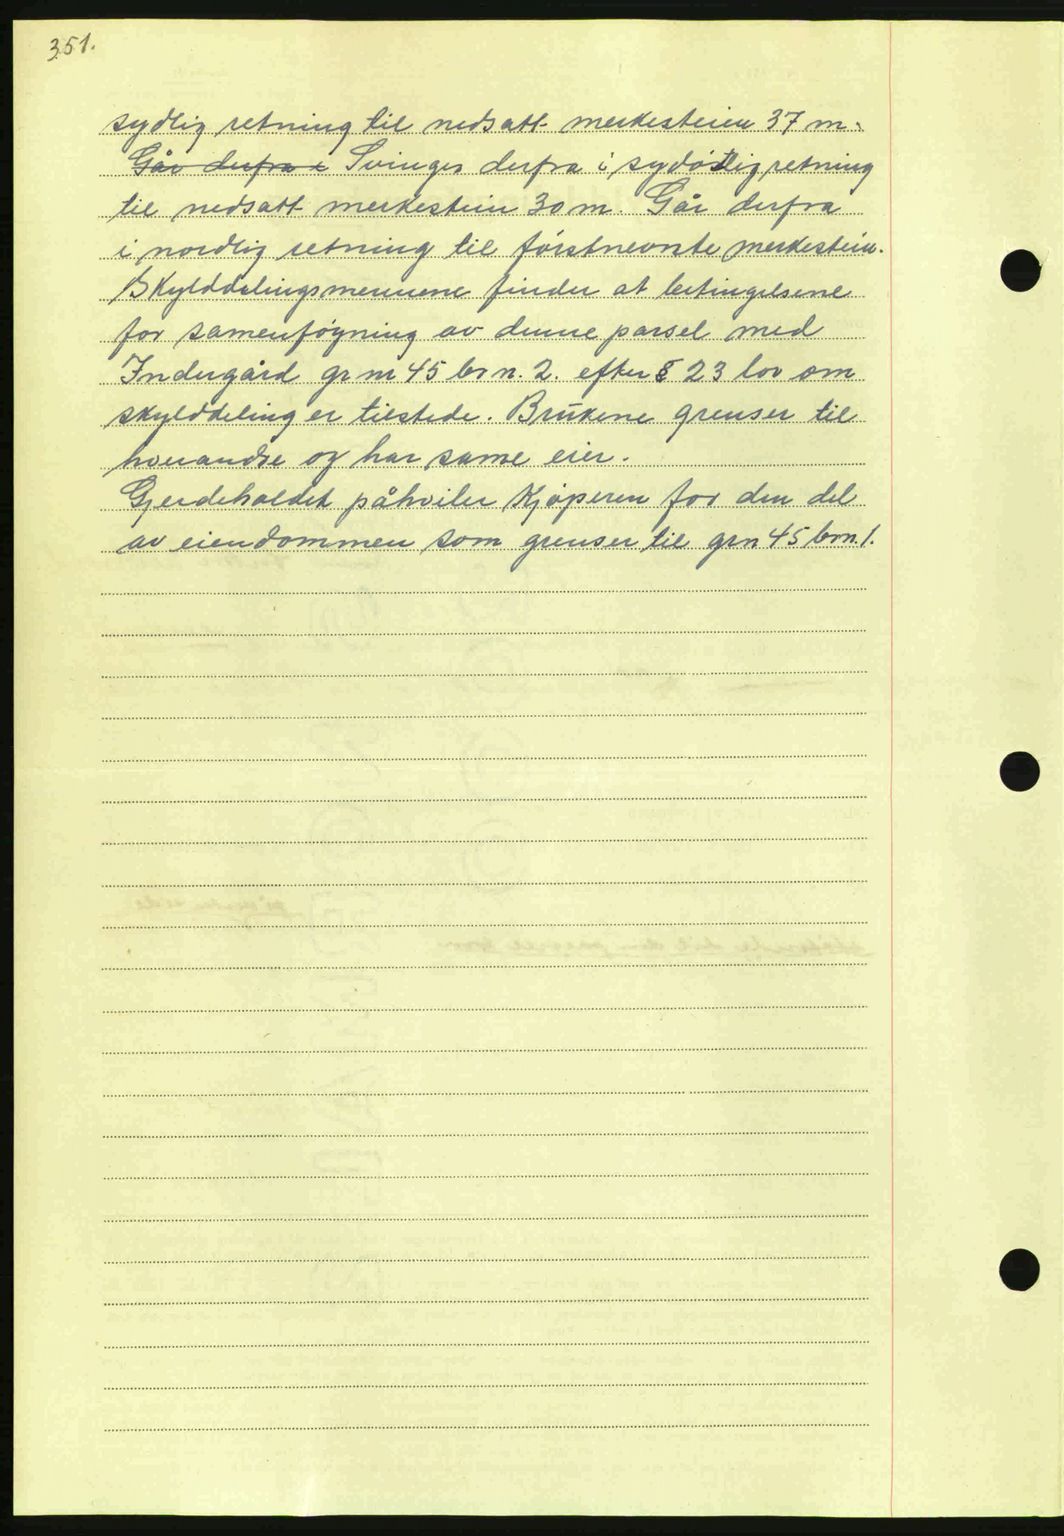 351.
sydlig retning til nedsatt merkesteien 37 m.
Går derfra i Svinges derfra i sydöstlig retning
til nedsatt merkestein 30 m. Går derfra
i nordlig retning til förstnevnte merkestein.
Skylddelingsmennene finder at betingelsene
for samenföyning av denne parsel med
Indergård gr nr 45 br n. 2. efter § 23 lov om
skylddeling er tilstede. Brukene grenser til
hverandre og har same eier.
Gjerdeholdet påhviler Kjöperen for den del
av eiendommen som grenser til grn 45 brn. 1.